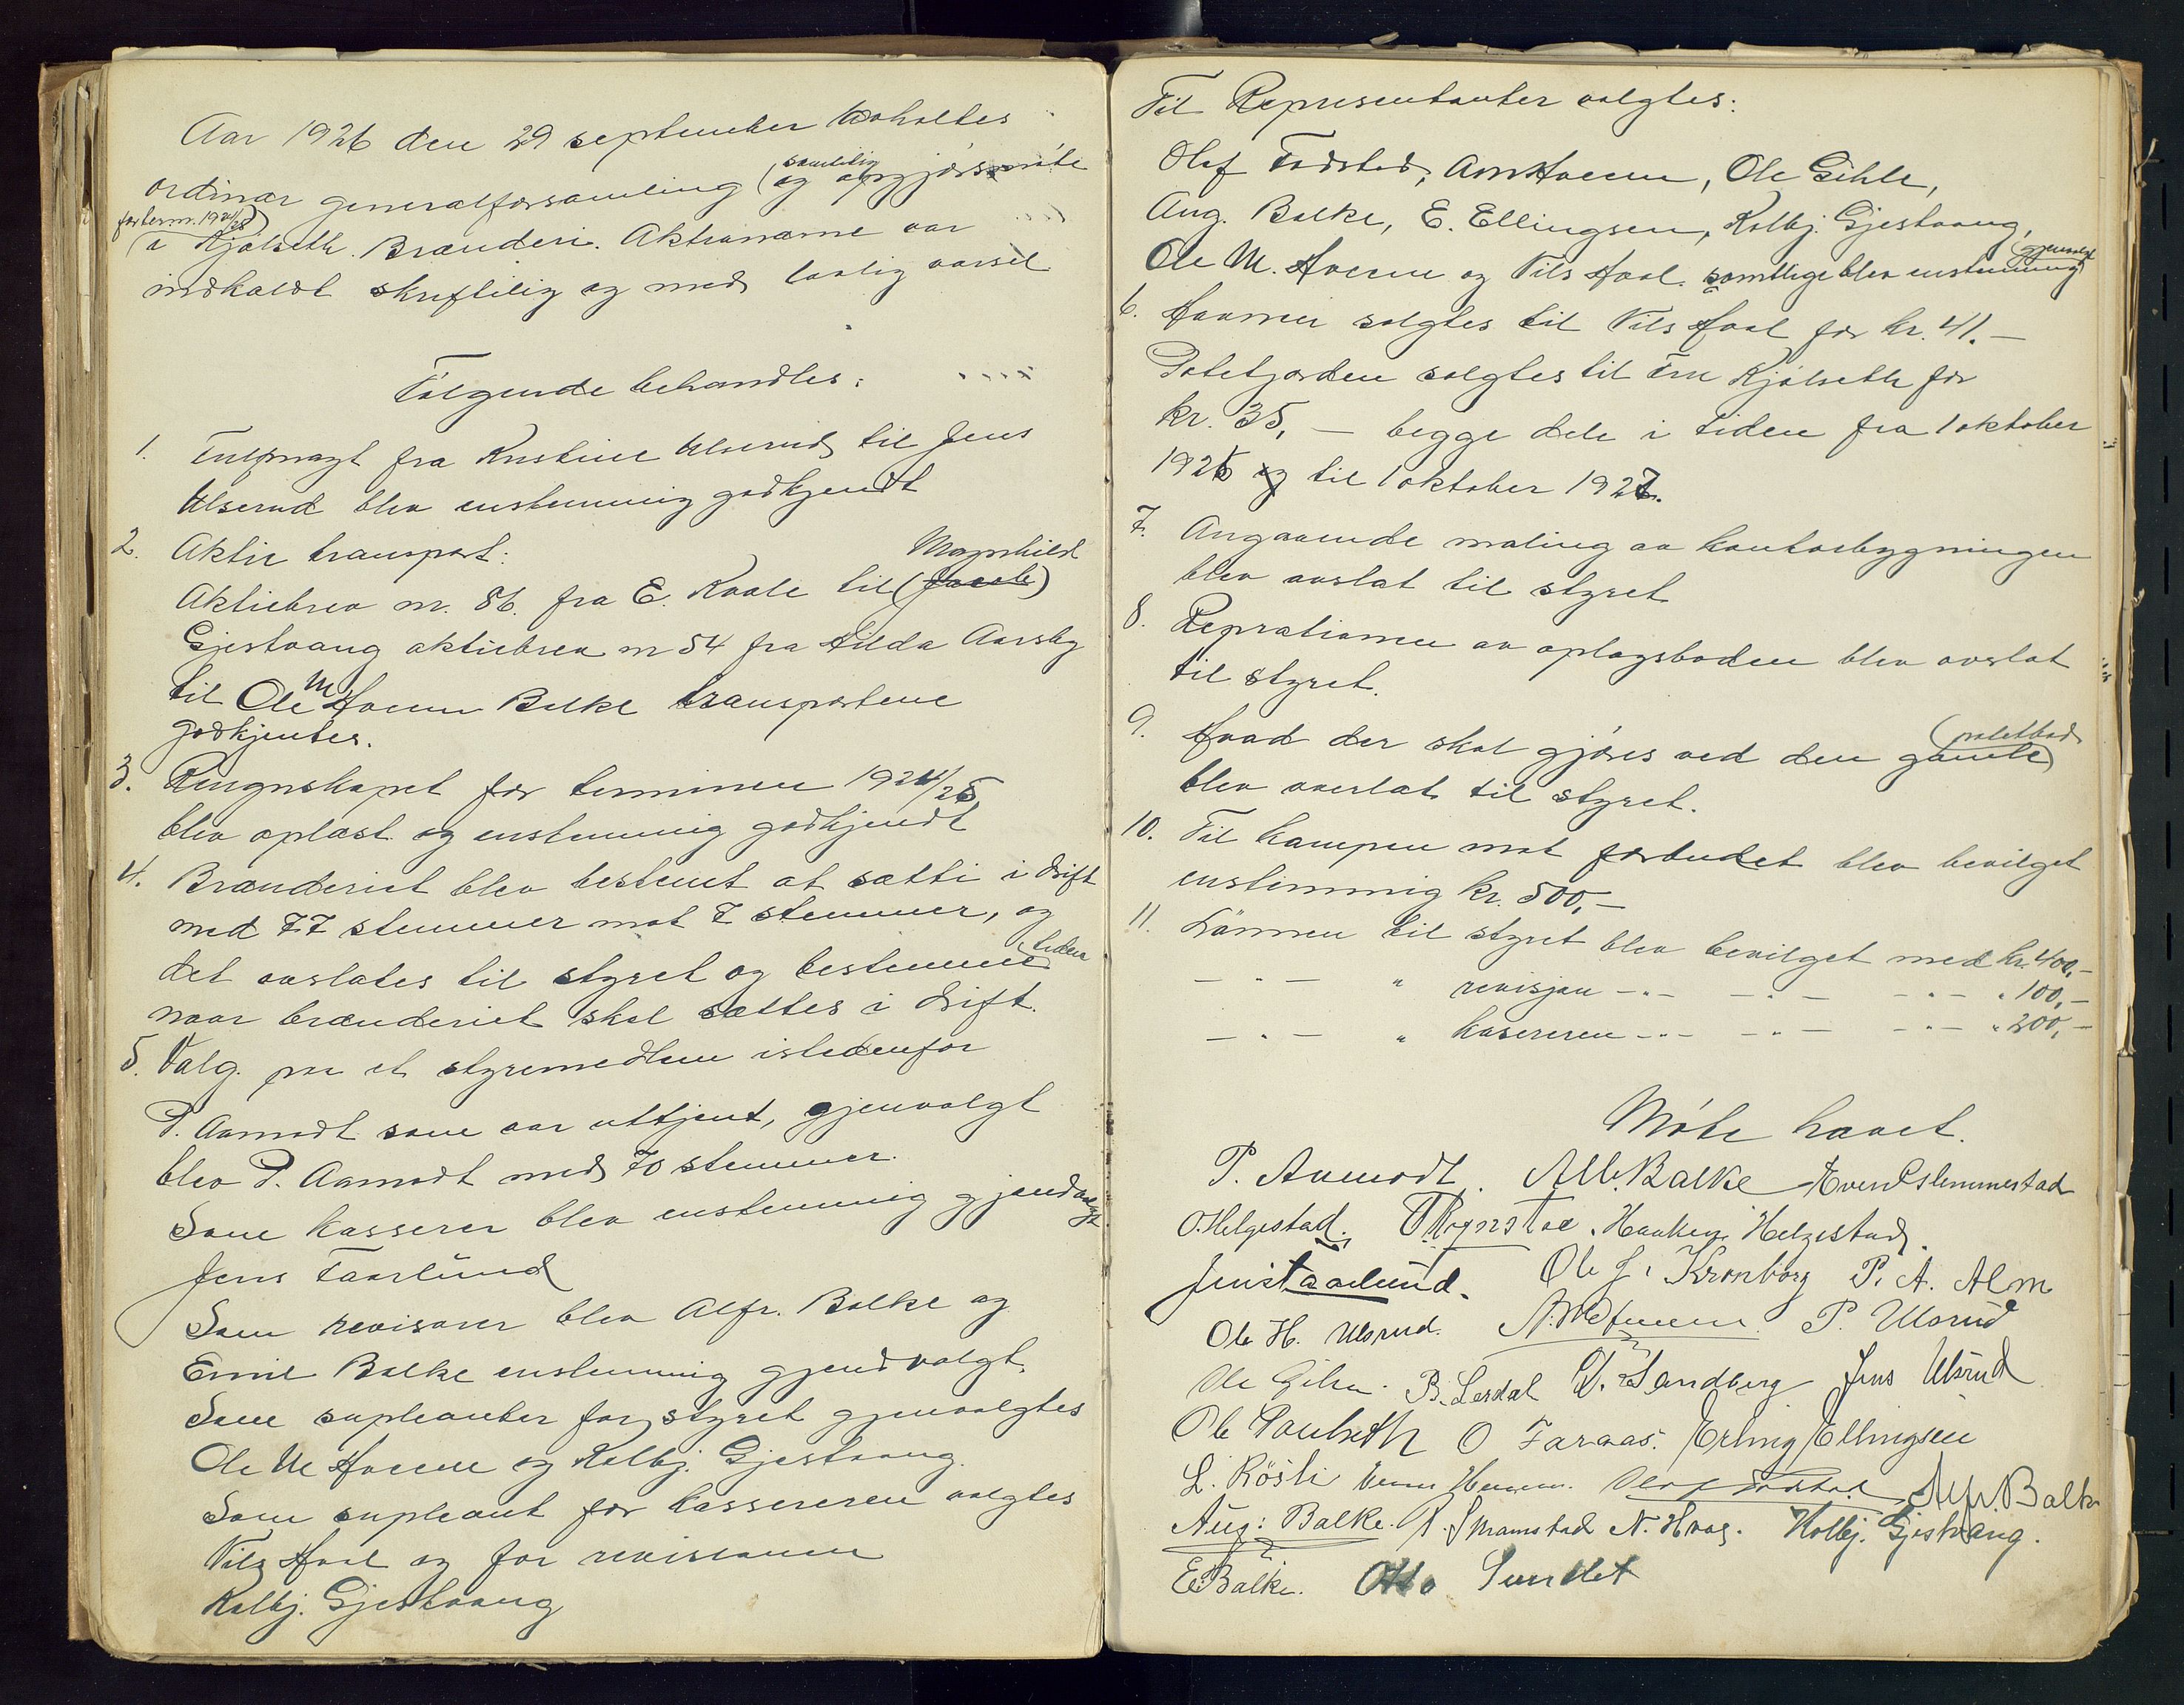 Aar 1926 den 29 september avholtes
ordinær generalforsamling (samtidig og opgjørsmøte
for term. 1924/25)
i Kjølseth Brænderi. Aktionærne var
indkaldt skriftlig og med lovlig varsel
Følgende behandles:
1. Fulmagt fra Kristine Ulsrud til Jens
Ulserud blev enstemmig godkjendt
2. Aktie transport: Magnhild
Aktiebrev nr. 86. fra E. Kvale til (Jacob)
Gjestvang aktiebrev nr 54 fra Hilda Aarsby
til Ole M Hveem Balke transportene
godkjentes.
3. Reignskapet for terminen 1924/25
blev oplæst og enstemmig godkjendt
4. Brænderiet blev bestemt at sætte i drift
med 77 stemmer mot 7 stemmer, og
det overlates til styret og bestemme tiden
naar brænderiet skal sættes i drift.
5. Valg. paa et styremedlem istedenfor
P. Aamodt som var uttjent, gjenvalgt
blev P. Aamodt med 70 stemmer.
Som kasserer blev enstemmig gjendvalgt
Jens Faarlund
Som revisorer blev Alfr. Balke og
Emil Balke enstemmig gjendvalgt.
Som supleanter for styret gjenvalgtes
Ole M Hveem og Kolbj. Gjestvang.
Som supleant for kassereren valgtes
Nils Hval og for revisorene
Kolbj. Gjestvang
Til Representanter valgtes:
Olaf Fodstad, Am Hveem, Ole Gihle,
Aug. Balke, E. Ellingsen, Kolbj. Gjestvang,
Ole M. Hveem og Nils Hval. samtlige blev enstemmig gjenvalgt
6. Havnen solgtes til Nils Hval for kr. 41.-
Potetjorden solgtes til Fru Kjølseth for
kr. 35,- begge dele i tiden fra 1 oktober
1926 og til 1 oktober 1927.
7. Angaaende maling av kontorbygningen
blev overlat til styret
8. Reprationen av oplagsboden blev overlat
til styret.
9. Hvad der skal gjøres ved den gamle (potetbod)
blev overlat til styret.
10. Til kampen mot forbudet blev bevilget
enstemmig kr. 500,-
11. Lønnen til styret blev bevilget med kr. 400,-
- " - " revisjon - " - - " - - " - " 100,-
- " - " kasereren - " - - " - - " - " 200,-
Møte hævet.
P. Aamodt. Alb. Balke Even Slemmestad
O. Helgestad. O Rognstad. Haaken Helgestad.
Jens Faarlund. Ole J. Kronborg P. A. Alm
Ole H. Ulsrud. A. M Hveem P. Ulsrud
Ole Gihle. B. Lerdal O. Sandberg Jens Ulsrud
Ole Paulseth O Faraas. Erling Ellingsen
L. Røsli Olaf Fodstad Alfr. Balke
Aug: Balke. Kramstad N. Hval. Kolbj. Gjestvang.
E. Balke. Otto Sundet